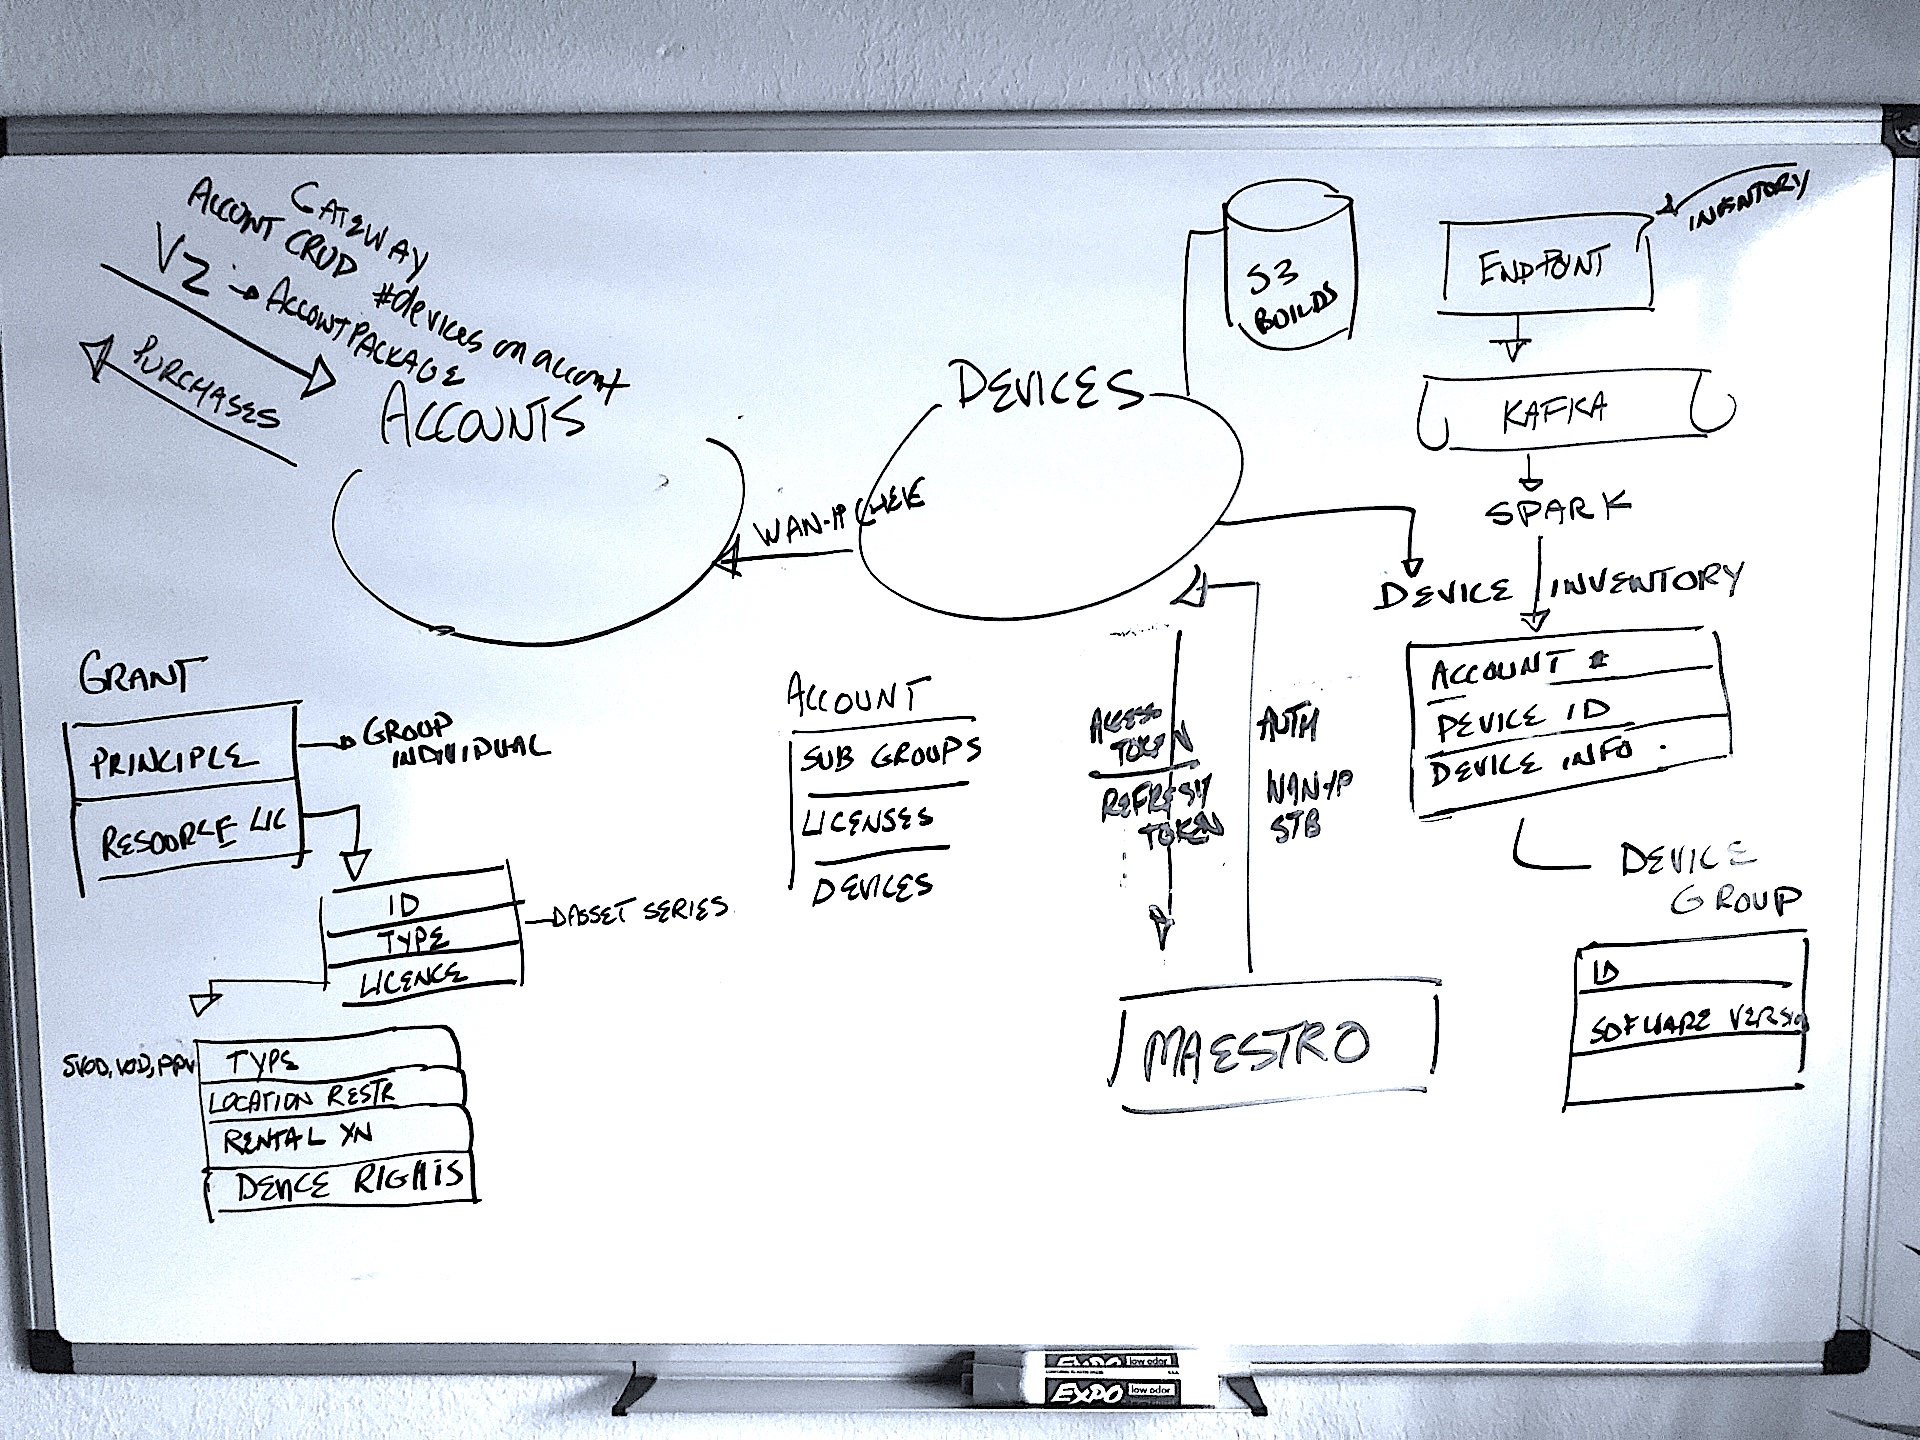 GATEWAY
ACCOUNT CRUD #devices on account
VZ → ACCOUNT PACKAGE
PURCHASES
ACCOUNTS
WAN-IP
DEVICES
S3
BUILDS
INVENTORY
ENDPOINT
KAFKA
SPARK
DEVICE INVENTORY
ACCOUNT #
DEVICE ID
DEVICE INFO
DEVICE
GROUP
ID
SOFWARE VERSIO
GRANT
PRINCIPLE
GROUP
INDIVIDUAL
RESOURCE LIC
ID
TYPE
LICENCE
ASSET SERIES
SVOD, VOD, PPV
TYPE
LOCATION RESTR
RENTAL YN
DEVICE RIGHTS
ACCOUNT
SUB GROUPS
LICENSES
DEVICES
ACCESS
TOKEN
REFRESH
TOKEN
AUTH
WAN-IP
STB
MAESTRO
EXPO low odor
EXPO low odor